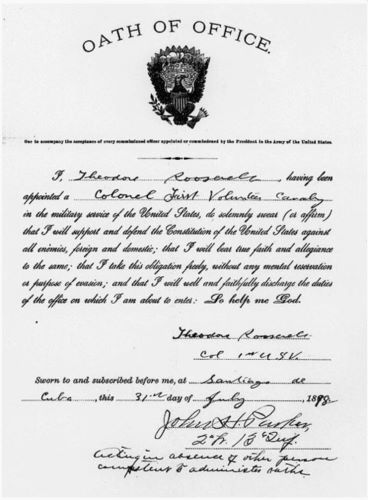 OATH OF OFFICE.
One to accompany the acceptance of every commissioned officer appointed or commissioned by the President in the Army of the United States.
I, Theodore Roosevelt, having been
appointed a Colonel First Volunteer Cavalry
in the military service of the United States, do solemnly swear (or affirm)
that I will support and defend the Constitution of the United States against
all enemies, foreign and domestic; that I will bear true faith and allegiance
to the same; that I take this obligation freely, without any mental reservation
or purpose of evasion; and that I will well and faithfully discharge the duties
of the office on which I am about to enter: So help me God.
Theodore Roosevelt
Col 1st U.S.V.
Sworn to and subscribed before me, at Santiago de
Cuba, this 31st day of July 1898.
John H. Parker
2" Lt. 13" Inf.
Acting in absence of other person
competent to administer oaths.